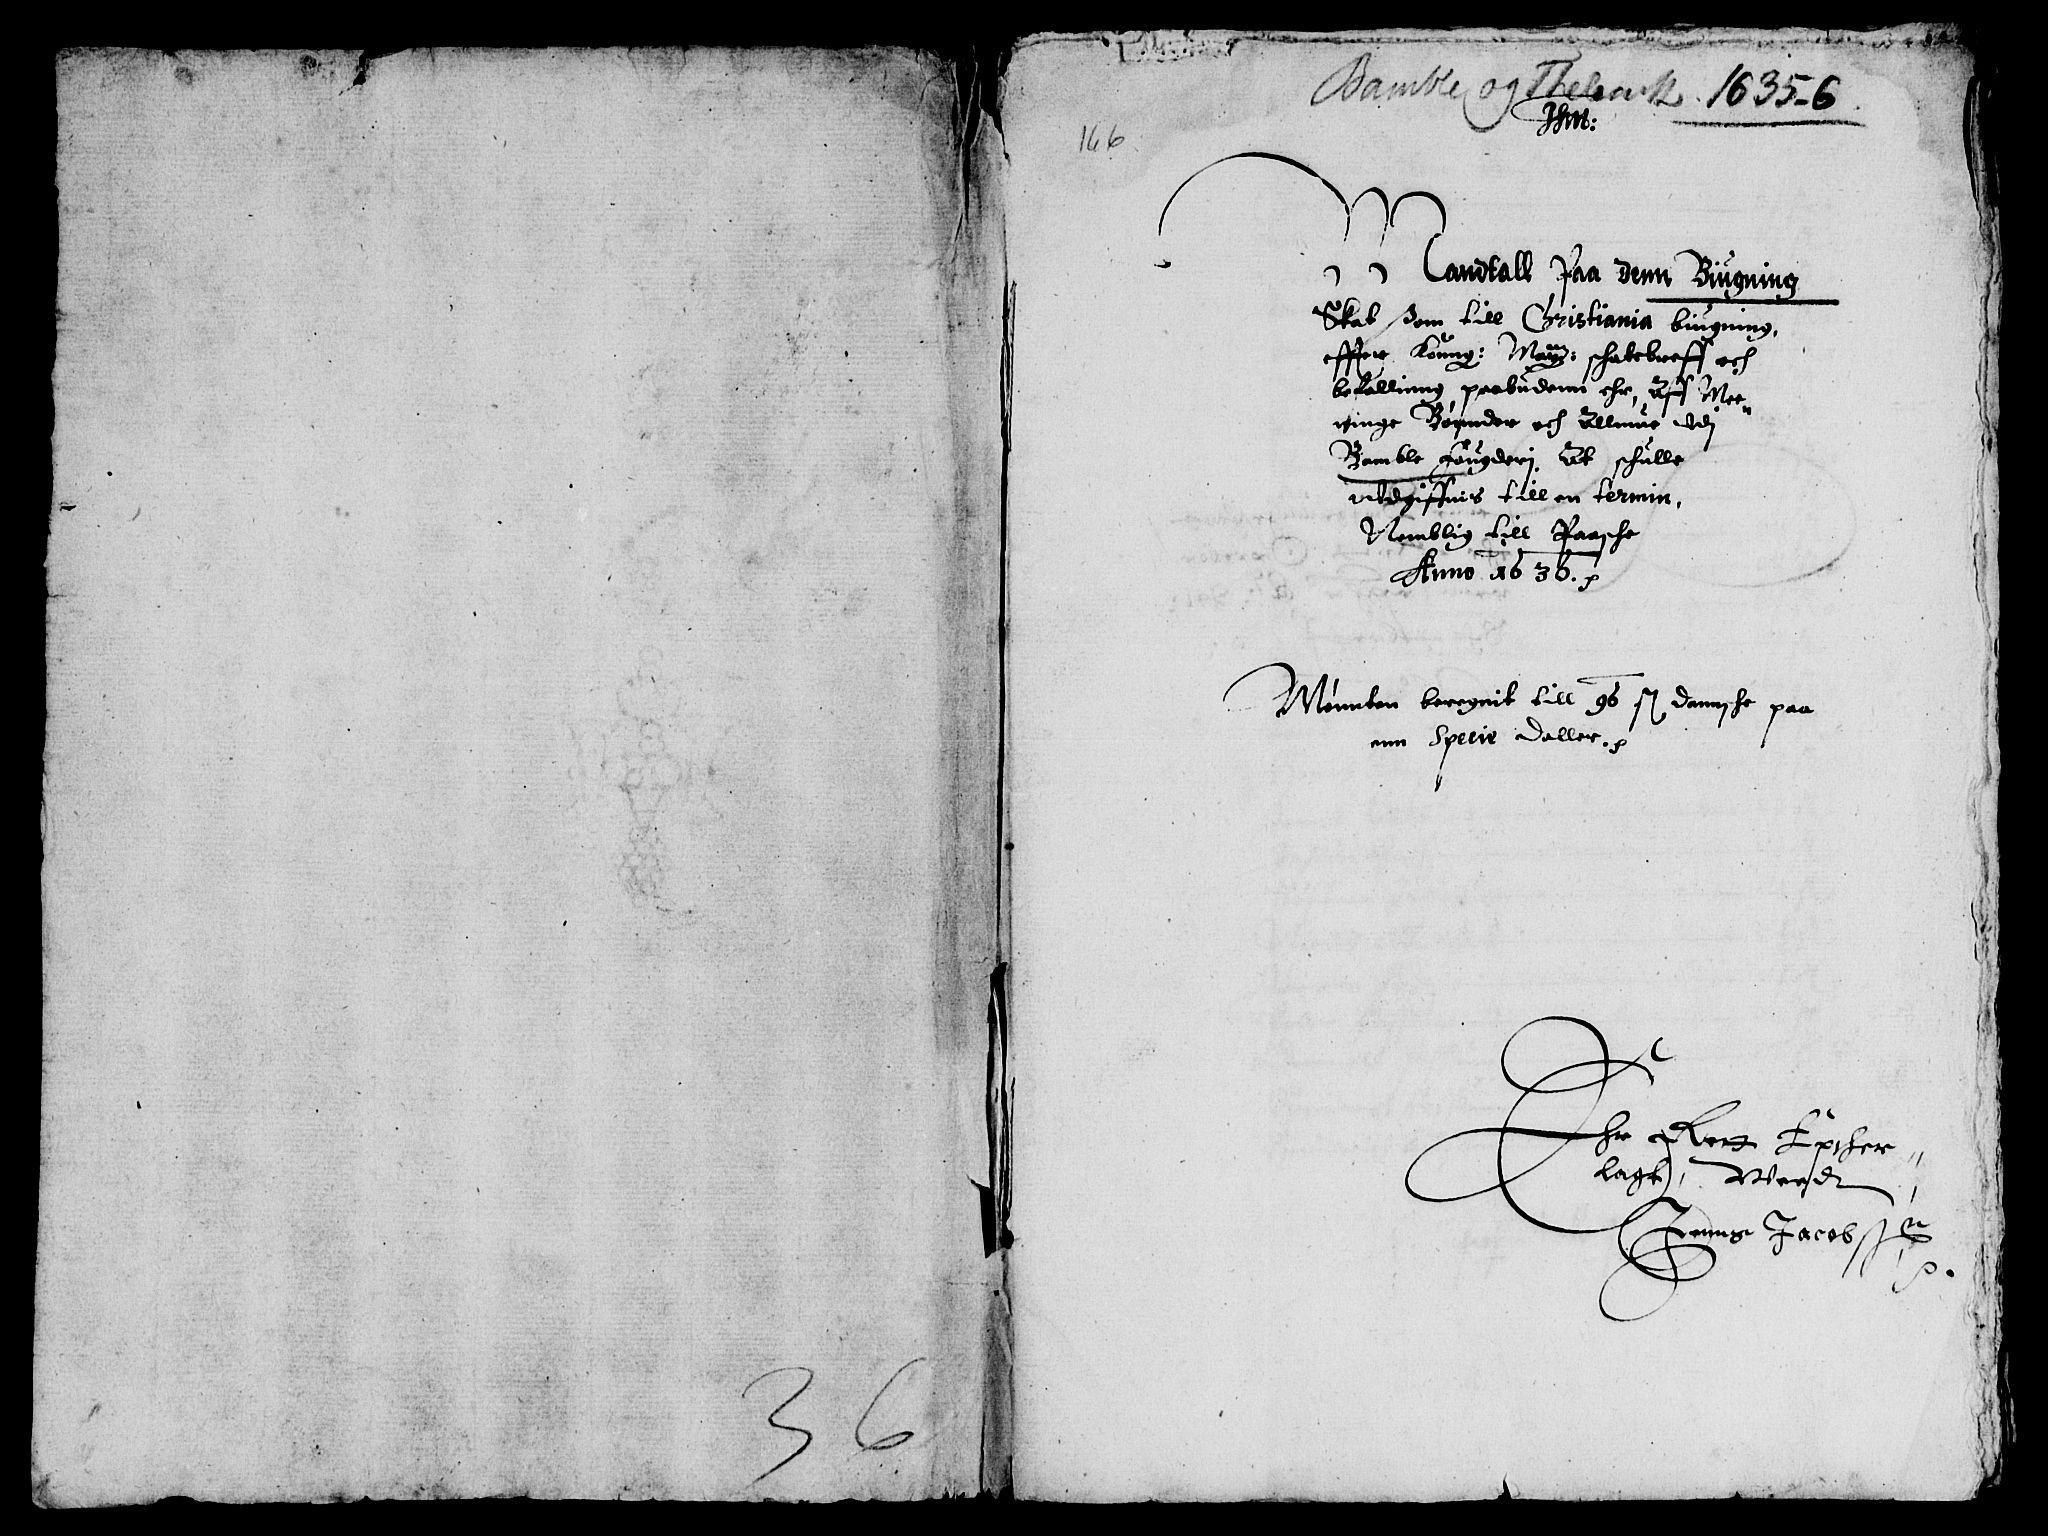 36
Bamble og Thelemk. 1635-6
Ihm:
166
Mandtall Paa denn Biugning
Skat som till Christiania biugning,
effter Konng: Maytz: schatebreff och
befallinng paabudenn ehr, Aff Mee
nige Bøynder och Allmue Udj
Bamble Fougderj, At schulle
uitdgiffuis till en termin,
Nemblig till Paasche
Anno 1636.
Mønnten beregnit till 96 sz dannsche paa
enn Specie Daller.
Ehr Rett
lagt, Med
Jenns Jacobss